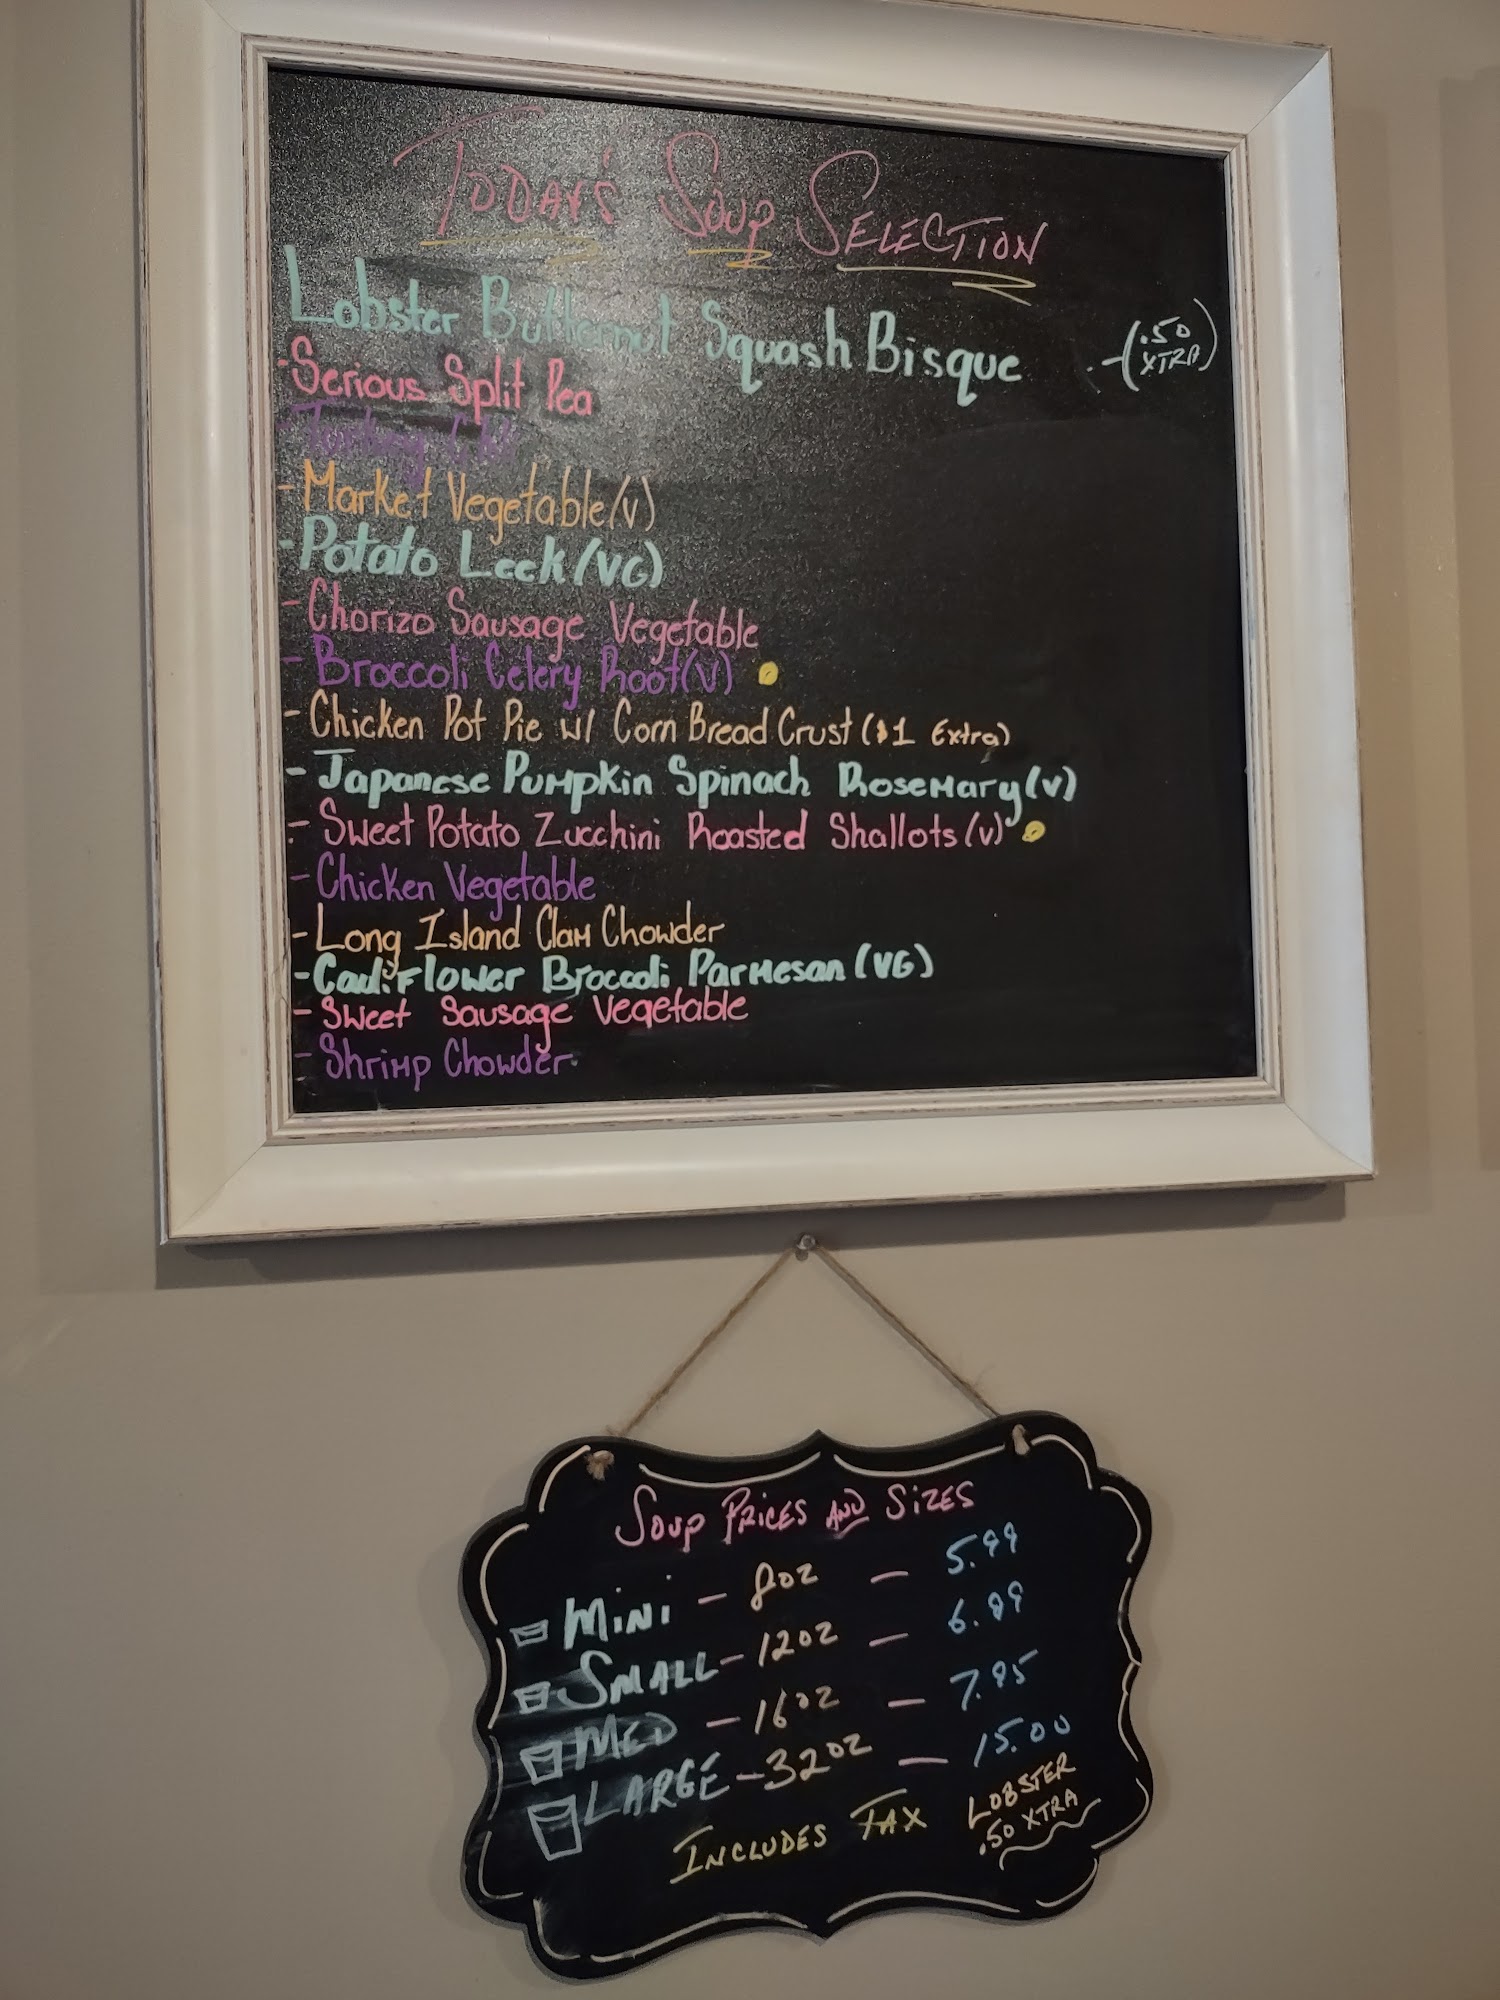 Today's Soup Selection
Lobster Butternut Squash Bisque -(.50 XTRA)
-Serious Split Pea
-Turkey
-Market Vegetable (V)
-Potato Leek (VG)
-Chorizo Sausage Vegetable
-Broccoli Celery Root (V)
-Chicken Pot Pie w/ Corn Bread Crust ($1 Extra)
-Japanese Pumpkin Spinach Rosemary (V)
-Sweet Potato Zucchini Roasted Shallots (V)
-Chicken Vegetable
-Long Island Clam Chowder
-Cauliflower Broccoli Parmesan (VG)
-Sweet Sausage Vegetable
-Shrimp Chowder
Soup Prices and Sizes
Mini - 8oz - 5.99
Small - 12oz - 6.99
Med - 16oz - 7.95
Large - 32oz - 15.00
Includes Tax
Lobster
.50 Xtra